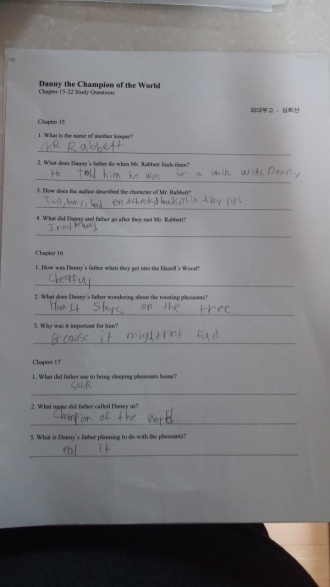 Danny the Champion of the World
Chapter 15-22 Study Questions
외대부고 - 심희선
Chapter 15
1. What is the name of another keeper?
MR Rabbett
2. What does Danny's father do when Mr. Rabbett finds them?
He told him he was for a walk with Danny
3. How does the author described the character of Mr. Rabbett?
Tall, bony,
4. What did Danny and father go after they met Mr. Rabbett?
Chapter 16
1. How was Danny's father when they get into the Hazell's Wood?
Cheerful
2. What does Danny's father wondering about the roosting pheasants?
How It Stays on the tree
3. Why was it important for him?
Because it might not fall.
Chapter 17
1. What did father use to bring sleeping pheasants home?
sack
2. What name did father called Danny as?
Champion of the world
3. What is Danny's father planning to do with the pheasants?
eat it